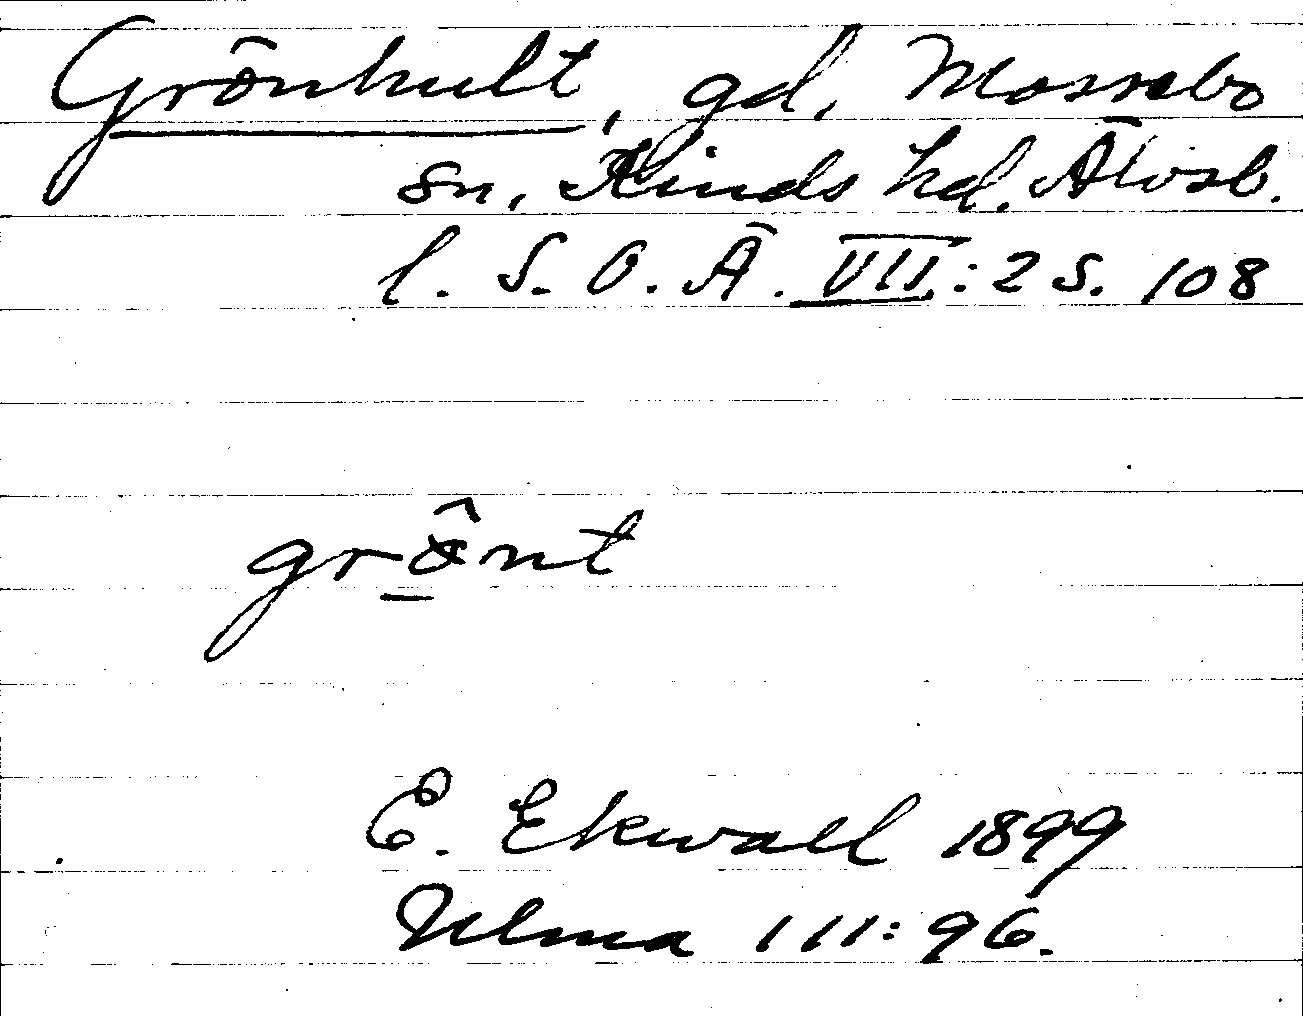 Grönhult, gd, Mossebo
sn, Kinds hd. Älvsb.
l. S. O. Ä. VII:2 S. 108
grônt
E. Ekwall 1899
Ulma 111:96.